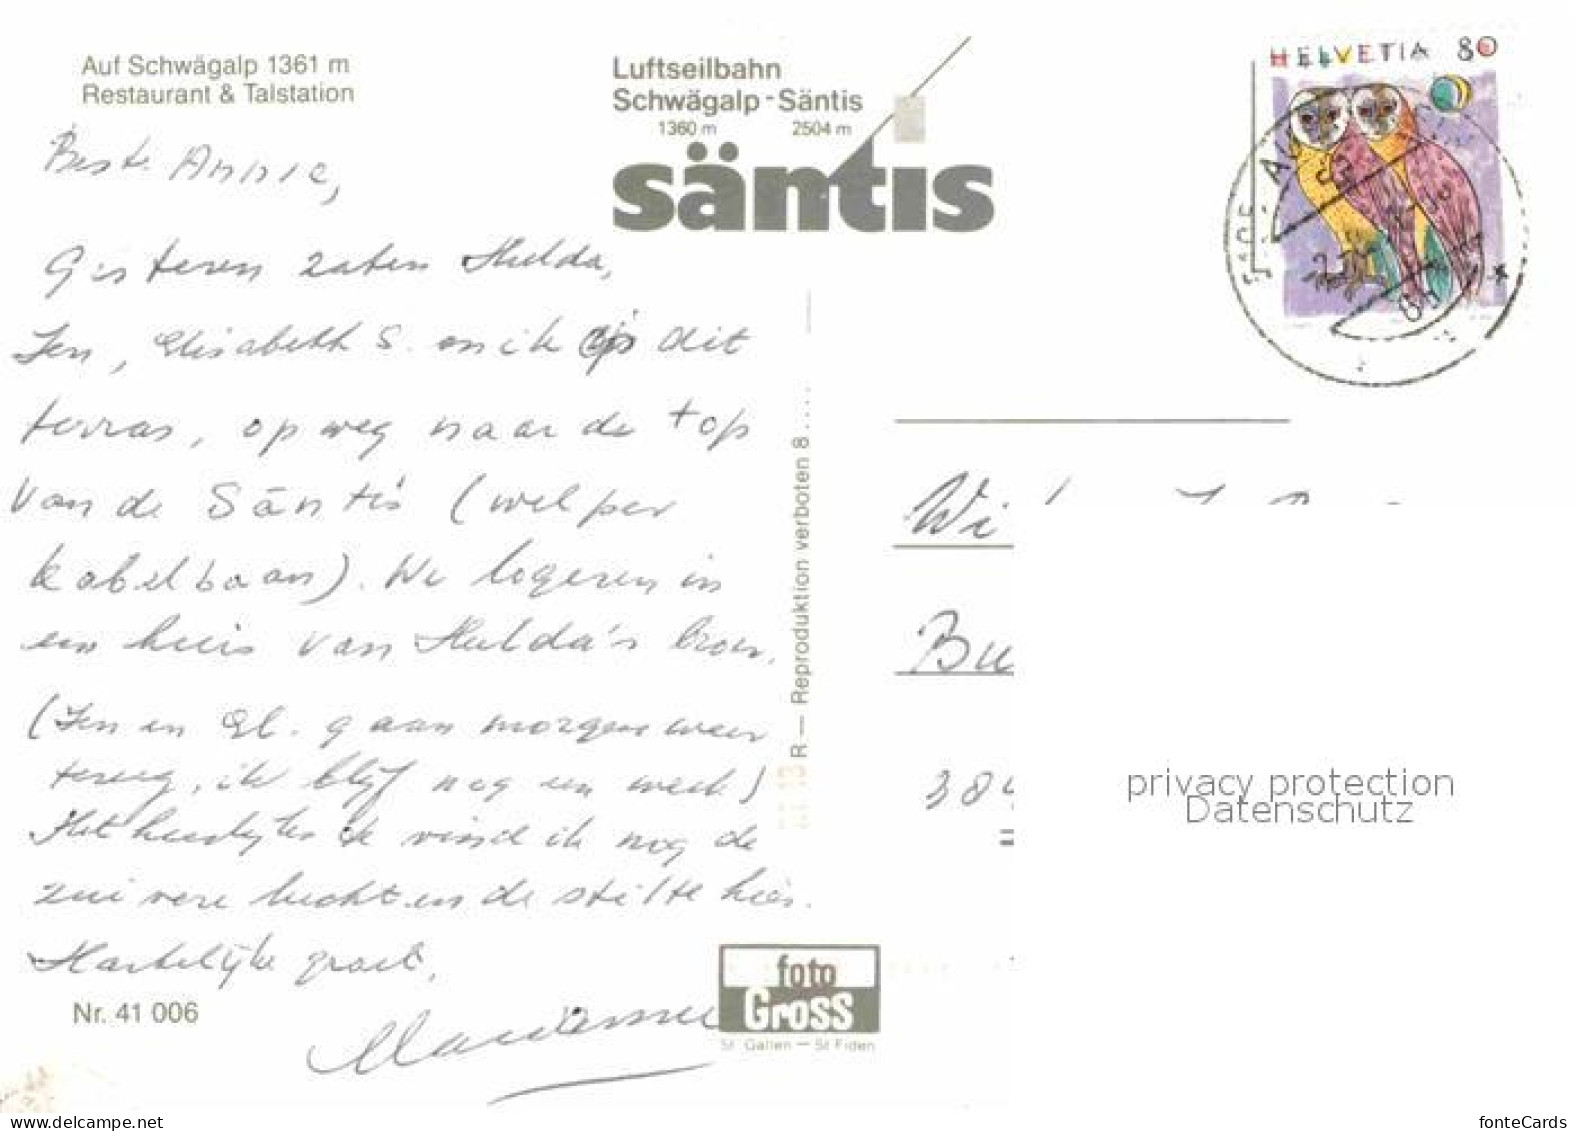 Auf Schwägalp 1361 m
Restaurant & Talstation
Luftseilbahn
Schwägalp-Säntis
1360 m 2504 m
säntis
HELVETIA 80
Beste Annie,
Gisteren zaten Hulda,
Jen, Elisabeth S. en ik op dit
terras, op weg naar de top
van de Säntis (wel per
kabelbaan). We logeren in
een huis van Hulda's broer.
(Jen en El. gaan morgen weer
terug, ik blijf nog een week)
Het heerlijkste vind ik nog de
zuivere lucht en de stilte hier.
Hartelijke groet,
Nr. 41 006
R — Reproduktion verboten 8....
foto
Gross
St. Gallen — St Fiden
Wi
Bu
384
privacy protection
Datenschutz
www.delcampe.net
fonteCards